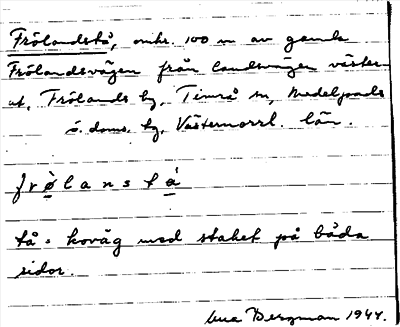 Frölandstå, omkr. 100 m av gamla
Frölandsvägen från landsvägen väster-
ut, Frölands by, Timrå sn, Medelpads
ö. doms. hg, Västernorrl. län.
frø̀lanstá
tå = koväg med staket på båda
sidor.
Bergman 1944.